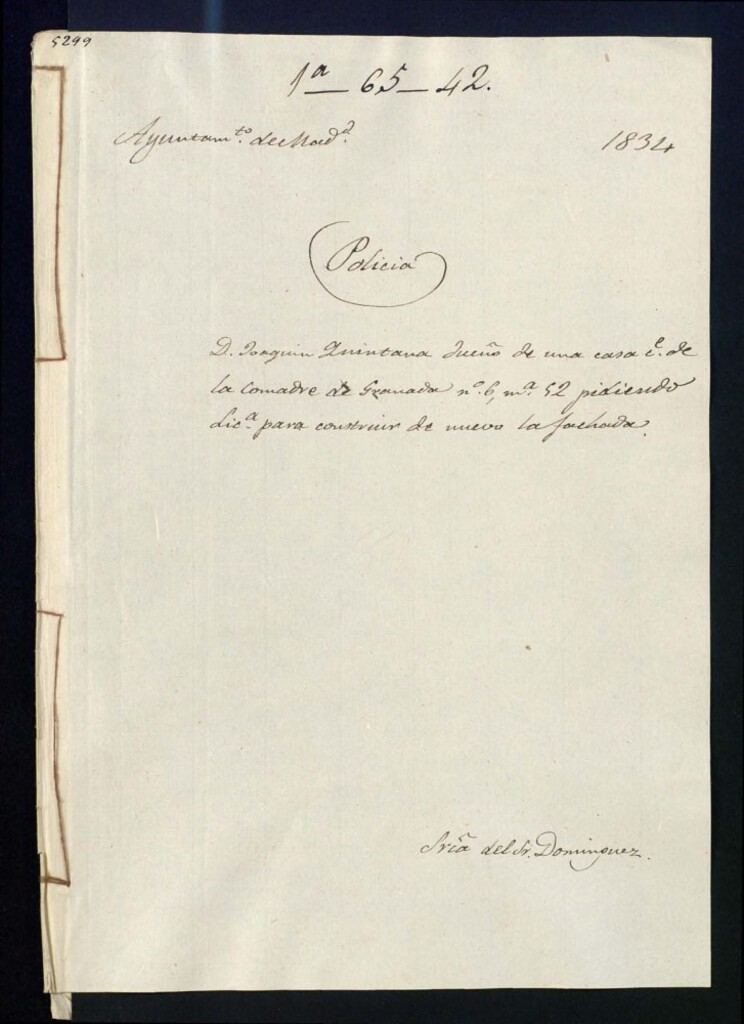 5299
1ª — 65 — 42.
Ayuntam.to de Mad.d 1834
Policia
D. Joaquin Quintana dueño de una casa c.e de
la Comadre de Granada n.º 6, m.ª 52 pidiendo
lic.ª para construir de nuevo la fachada.
Sria del Sr. Dominguez.